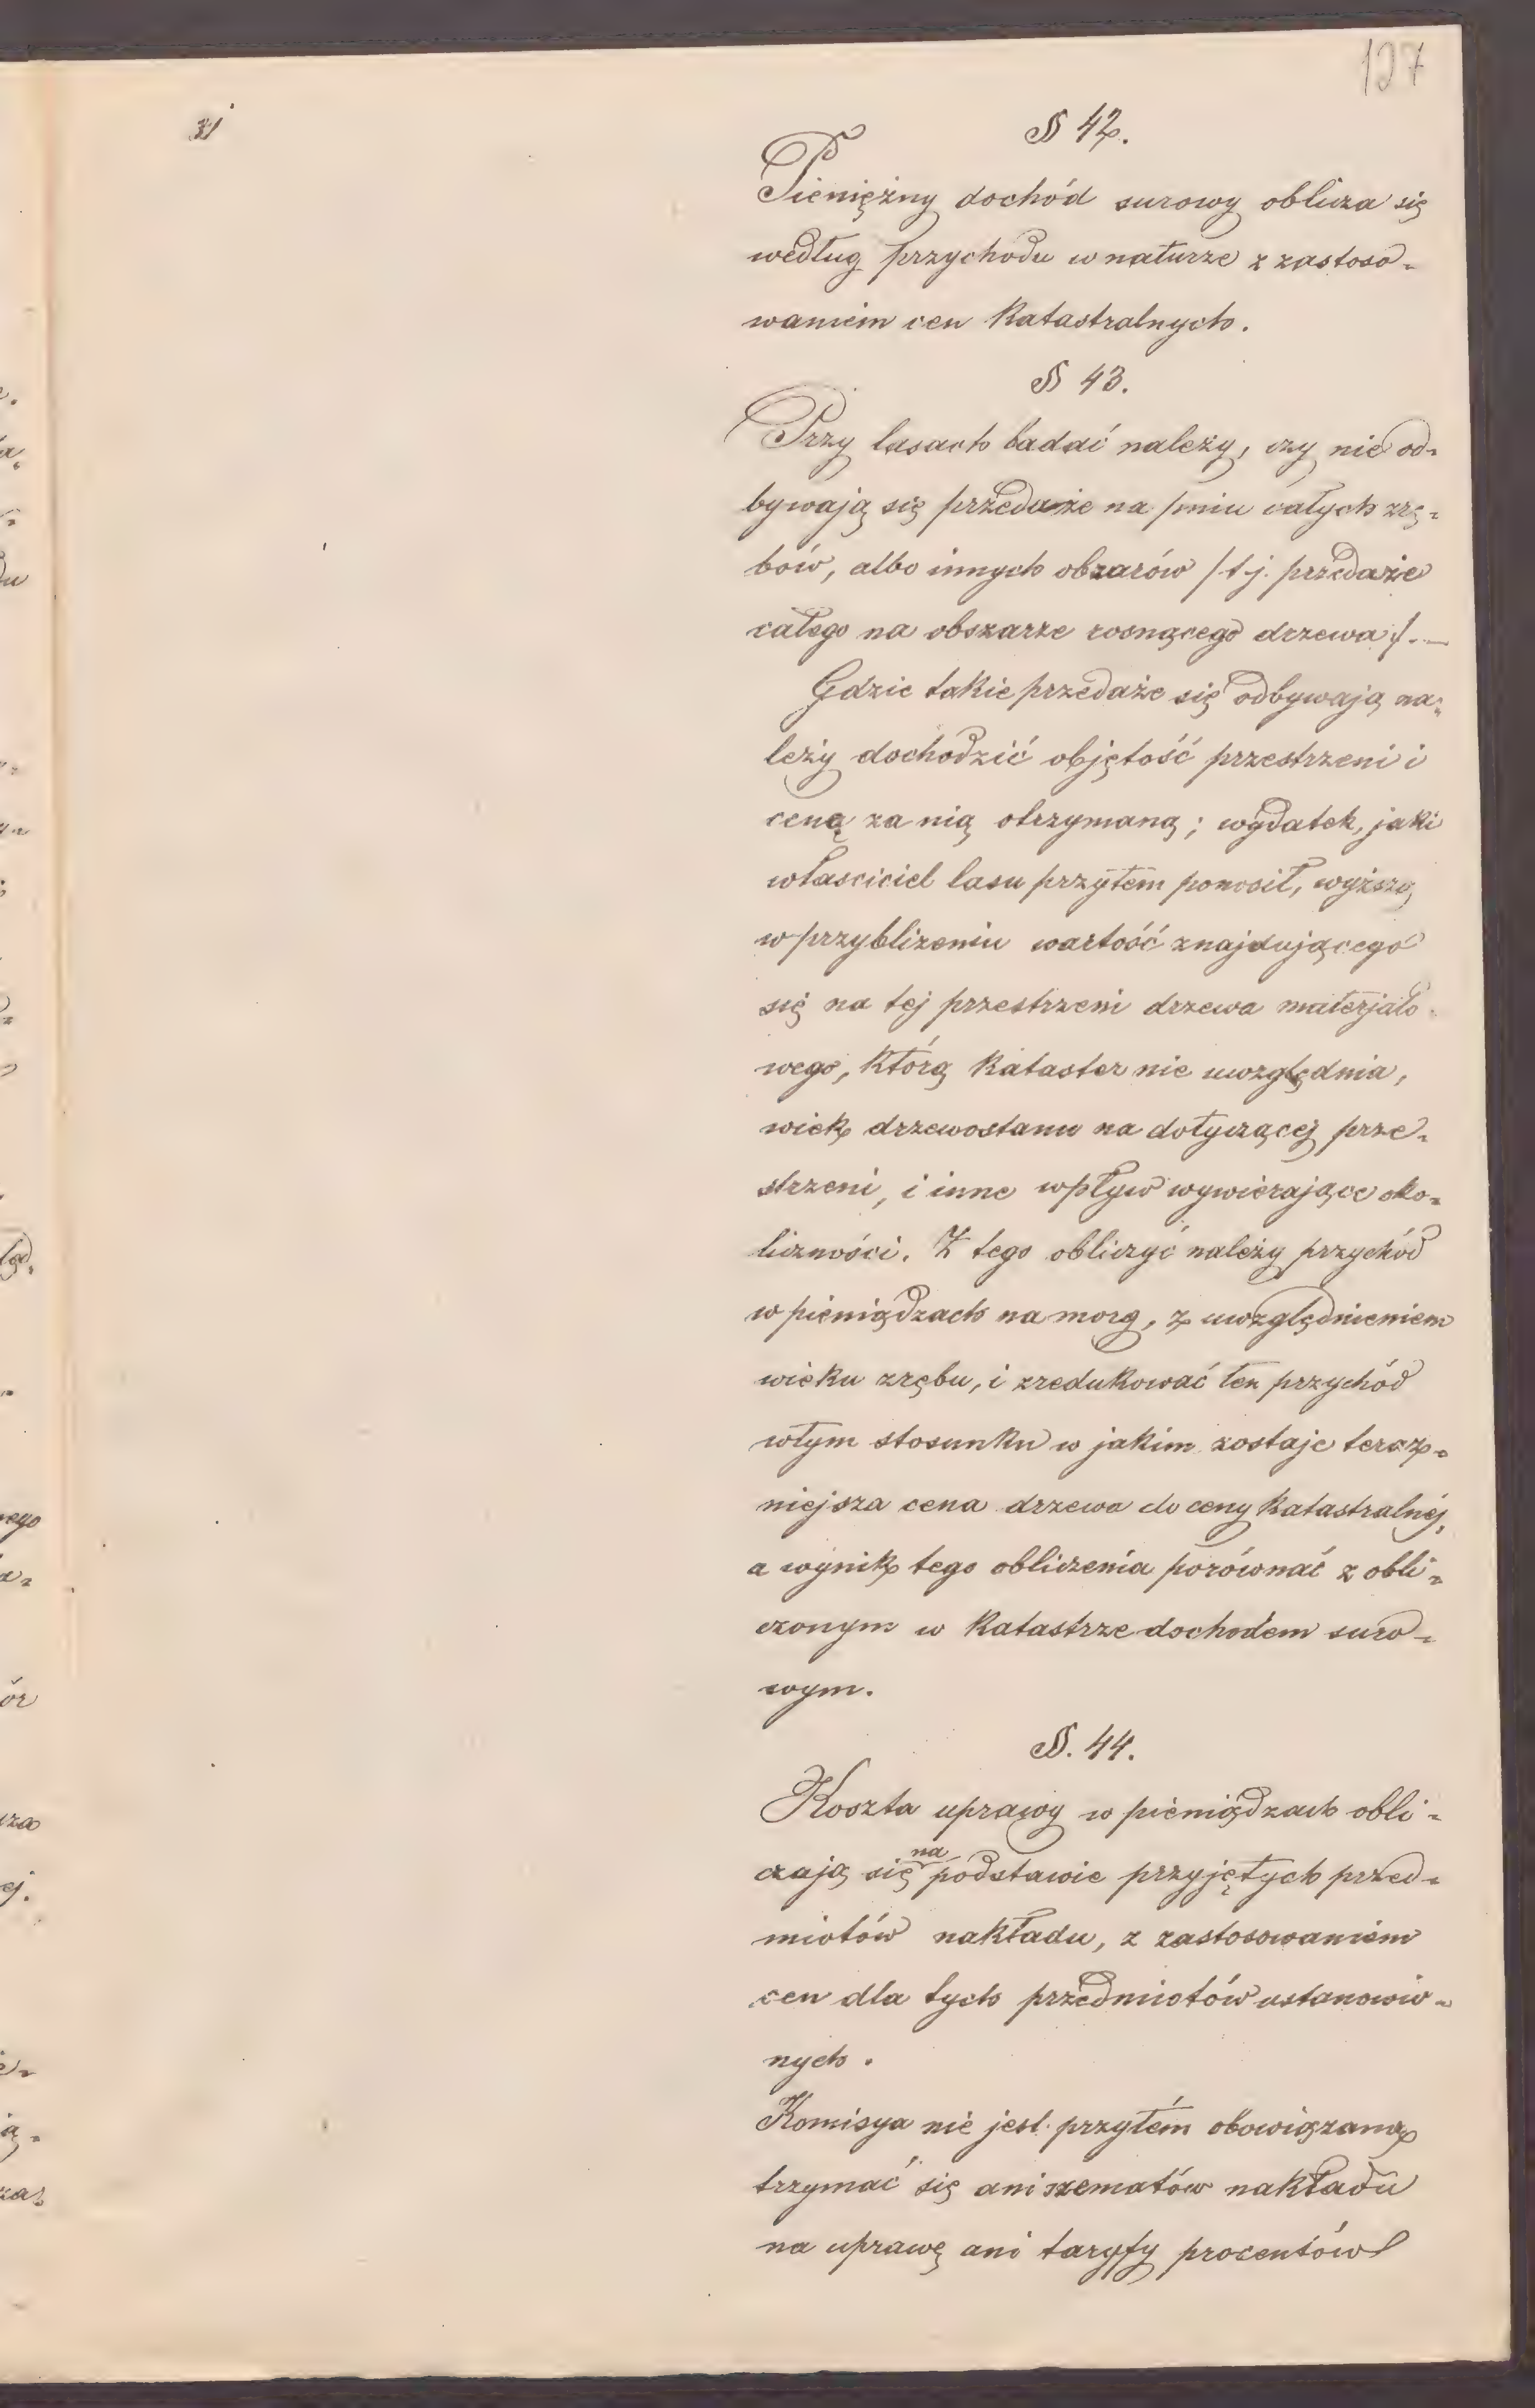 127
§ 42.
Pieniężny dochód surowy oblicza się
według przychodu w naturze z zastoso-
waniem cen katastralnych.
§ 43.
Przy lasach badać należy, czy nie od-
bywają się przedaże na pniu całych zrę-
bów, albo innych obzarów /t.j. przedaże
całego na obszarze rosnącego drzewa/.—
Gdzie takie przedaże się odbywają na-
leży dochodzić objętość przestrzeni i
cenę za nią otrzymaną; wydatek, jaki
własciciel lasu przytem ponosił, wyższą
w przybliżeniu wartość znajdującego
się na tej przestrzeni drzewa materjało-
wego, którą kataster nie uwzględnia,
wiek drzewostanu na dotyczącej prze-
strzeni, i inne wpływ wywierające oko-
liczności. Z tego obliczyć należy przychód
w pieniądzach na morg, z uwzględnieniem
wieku zrębu, i zredukować ten przychód
w tym stosunku w jakim zostaje teraz-
niejsza cena drzewa do ceny katastralnéj,
a wynik tego obliczenia porównać z obli-
czonym w katastrze dochodem suro-
wym.
§. 44.
Koszta uprawy w pieniądzach obli-
czają się na podstawie przyjętych przed-
miotów nakładu, z zastosowaniem
cen dla tych przedmiotów ustanowio-
nych.
Komisya nie jest przytém obowiązaną
trzymać się ani szematów nakładu
na uprawę ani taryfy procentów